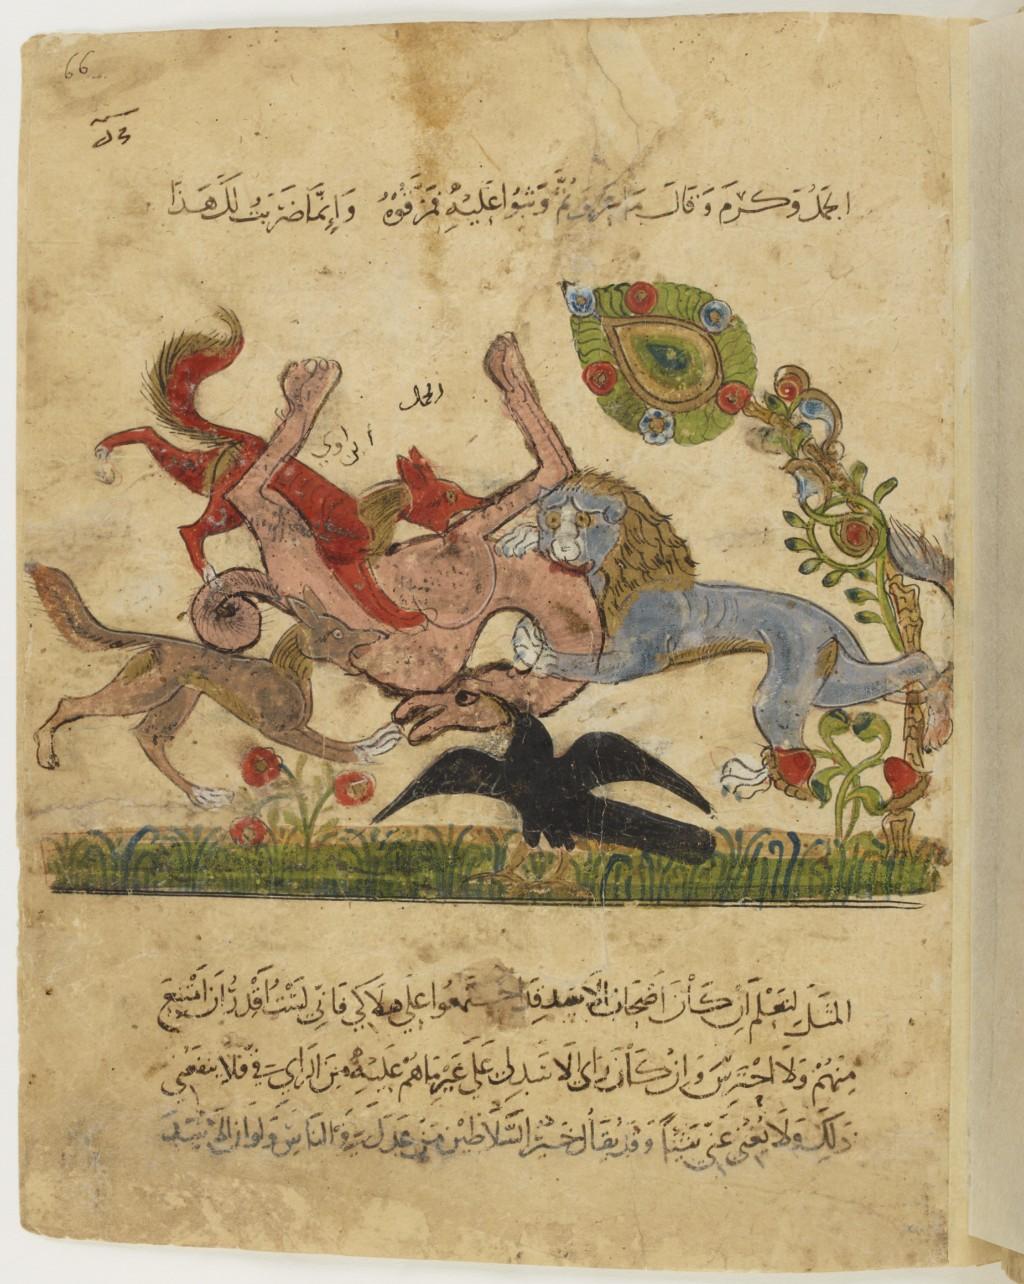 66
الجمل وكرم وقال ثم وثبوا عليه فمزقوه وانما ضربت لك هذا
الجمل
ابن اوي
المثل لتعلم ان كان اصحاب الاسد قد اجتمعوا على هلاكي فاني لست اقدر ان امتنع
منهم ولا احترس وان كان راى الاسد لي على غير ما هم عليه من الراي في فلا ينفعني
ذلك ولا يغني عني شيئا وقد يقال خير السلاطين من عدل في الناس ولو ان